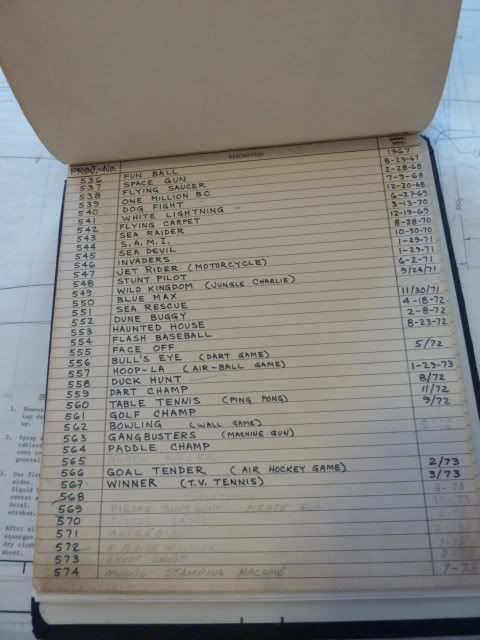 PROJ.-No. DESCRIPTION
536 FUN BALL 1967
537 SPACE GUN 8-29-67
538 FLYING SAUCER 2-28-68
539 ONE MILLION B.C. 7-9-68
540 DOG FIGHT 12-20-68
541 WHITE LIGHTNING - 6-27-69
542 FLYING CARPET 3-13-70
543 SEA RAIDER 12-19-69
544 S.A.M.I. 8-28-70
545 SEA DEVIL 10-30-70
546 INVADERS 1-29-71
547 JET RIDER (MOTORCYCLE) 1-29-71
548 STUNT PILOT 6-2-71
549 WILD KINGDOM (JUNGLE CHARLIE) 9/24/71
550 BLUE MAX
551 SEA RESCUE 11/30/71
552 DUNE BUGGY 4-18-72
553 HAUNTED HOUSE 2-8-72
554 FLASH BASEBALL 8-23-72
555 FACE OFF
556 BULL'S EYE (DART GAME) 5/72
557 HOOP-LA (AIR-BALL GAME)
558 DUCK HUNT 1-29-73
559 DART CHAMP 8/72
560 TABLE TENNIS (PING PONG) 11/72
561 GOLF CHAMP 9/72
562 BOWLING (WALL GAME)
563 GANGBUSTERS (MACHINE GUN)
564 PADDLE CHAMP
565
566 GOAL TENDER (AIR HOCKEY GAME) 2/73
567 WINNER (T.V. TENNIS) 3/73
568
569 PIRATE GUN
570 GAME
571
572
573
574 STAMPING MACHINE
1. Remove
2. Spray
cabinet
even
general
3. Use
sides.
liquid
center
decal.
strokes.
After
squeegee
dry
sheet.